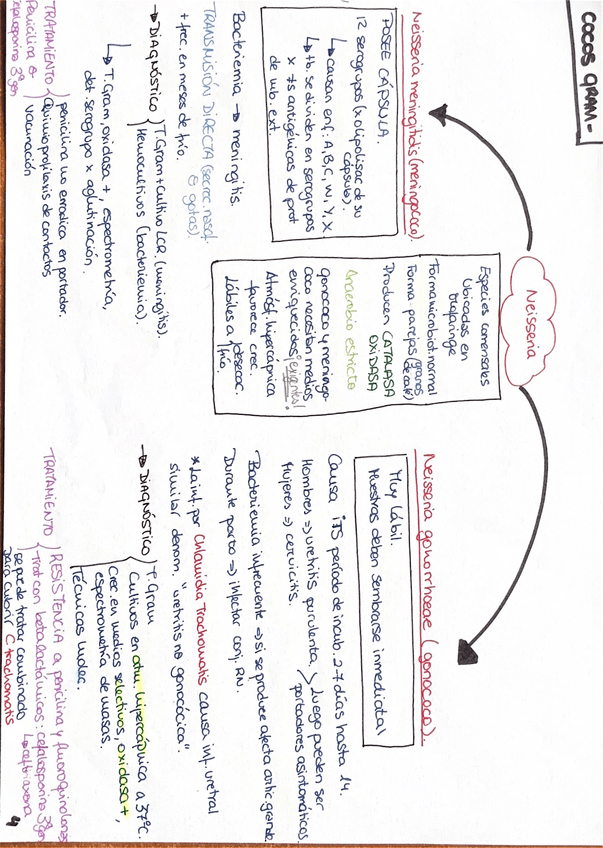 COCOS GRAM-
Neisseria
Especies comensales
Ubicadas en
orofaringe
Forma microbiot. normal
Forma parejas (granos de café)
Producen CATALASA
OXIDASA
Anaerobio estricto
gonococo y meningo-
coco necesitan medios
enriquecidos ¡exigentes!
Atmósf. hipercápnica
favorece crec.
Lábiles a desecac.
frío.
Neisseria meningitidis (meningococo).
POSEE CÁPSULA.
12 serogrupos (x olipolisac de su
cápsula).
↳ causan enf: A, B, C, W, Y, X
↳ tb. se dividen en serogrupos
x ≠s antigénicas de prot
de mb. ext
Bacteriemia → meningitis.
TRANSMISIÓN DIRECTA (secrec. nasal
o gotas).
+ frec. en meses de frío.
→ DIAGNÓSTICO { T. Gram + cultivo LCR. (meningitis).
Hemocultivos (bacteriemia).
↳ T. Gram, oxidasa +, espectrometría,
det. serogrupo x aglutinación.
TRATAMIENTO { penicilina no erradica en portador.
Penicilina o Quimioprofilaxis de contactos
cefalosporina 3ªgen vacunación
Neisseria gonorrhoeae (gonococo).
Muy lábil.
Muestras deben sembrarse inmediata!
Causa ITS periodo de incub. 2-7 días hasta 14.
Hombres ⇒ uretritis purulenta. > Luego pueden ser
Mujeres ⇒ cervicitis. portadores asintomáticos.
Bacteriemia infrecuente ⇒ si se produce afecta artic. grande
Durante parto ⇒ infectar conj. RN.
* La inf. por Chlamidia Trachomatis causa inf. uretral
similar denom. "uretritis no gonocócica".
→ DIAGNÓSTICO { T. Gram
Cultivos en atm. hipercápnica a 37ºC.
Crec en medios selectivos, oxidasa +,
espectrometría de masas.
Técnicas molec.
TRATAMIENTO { RESISTENCIA a penicilina y fluoroquinolonas
Trat con betalactámicos: cefalosporina 3ªgen
↳ ceftriaxona
se puede tratar combinado
para cubrir C. trachomatis